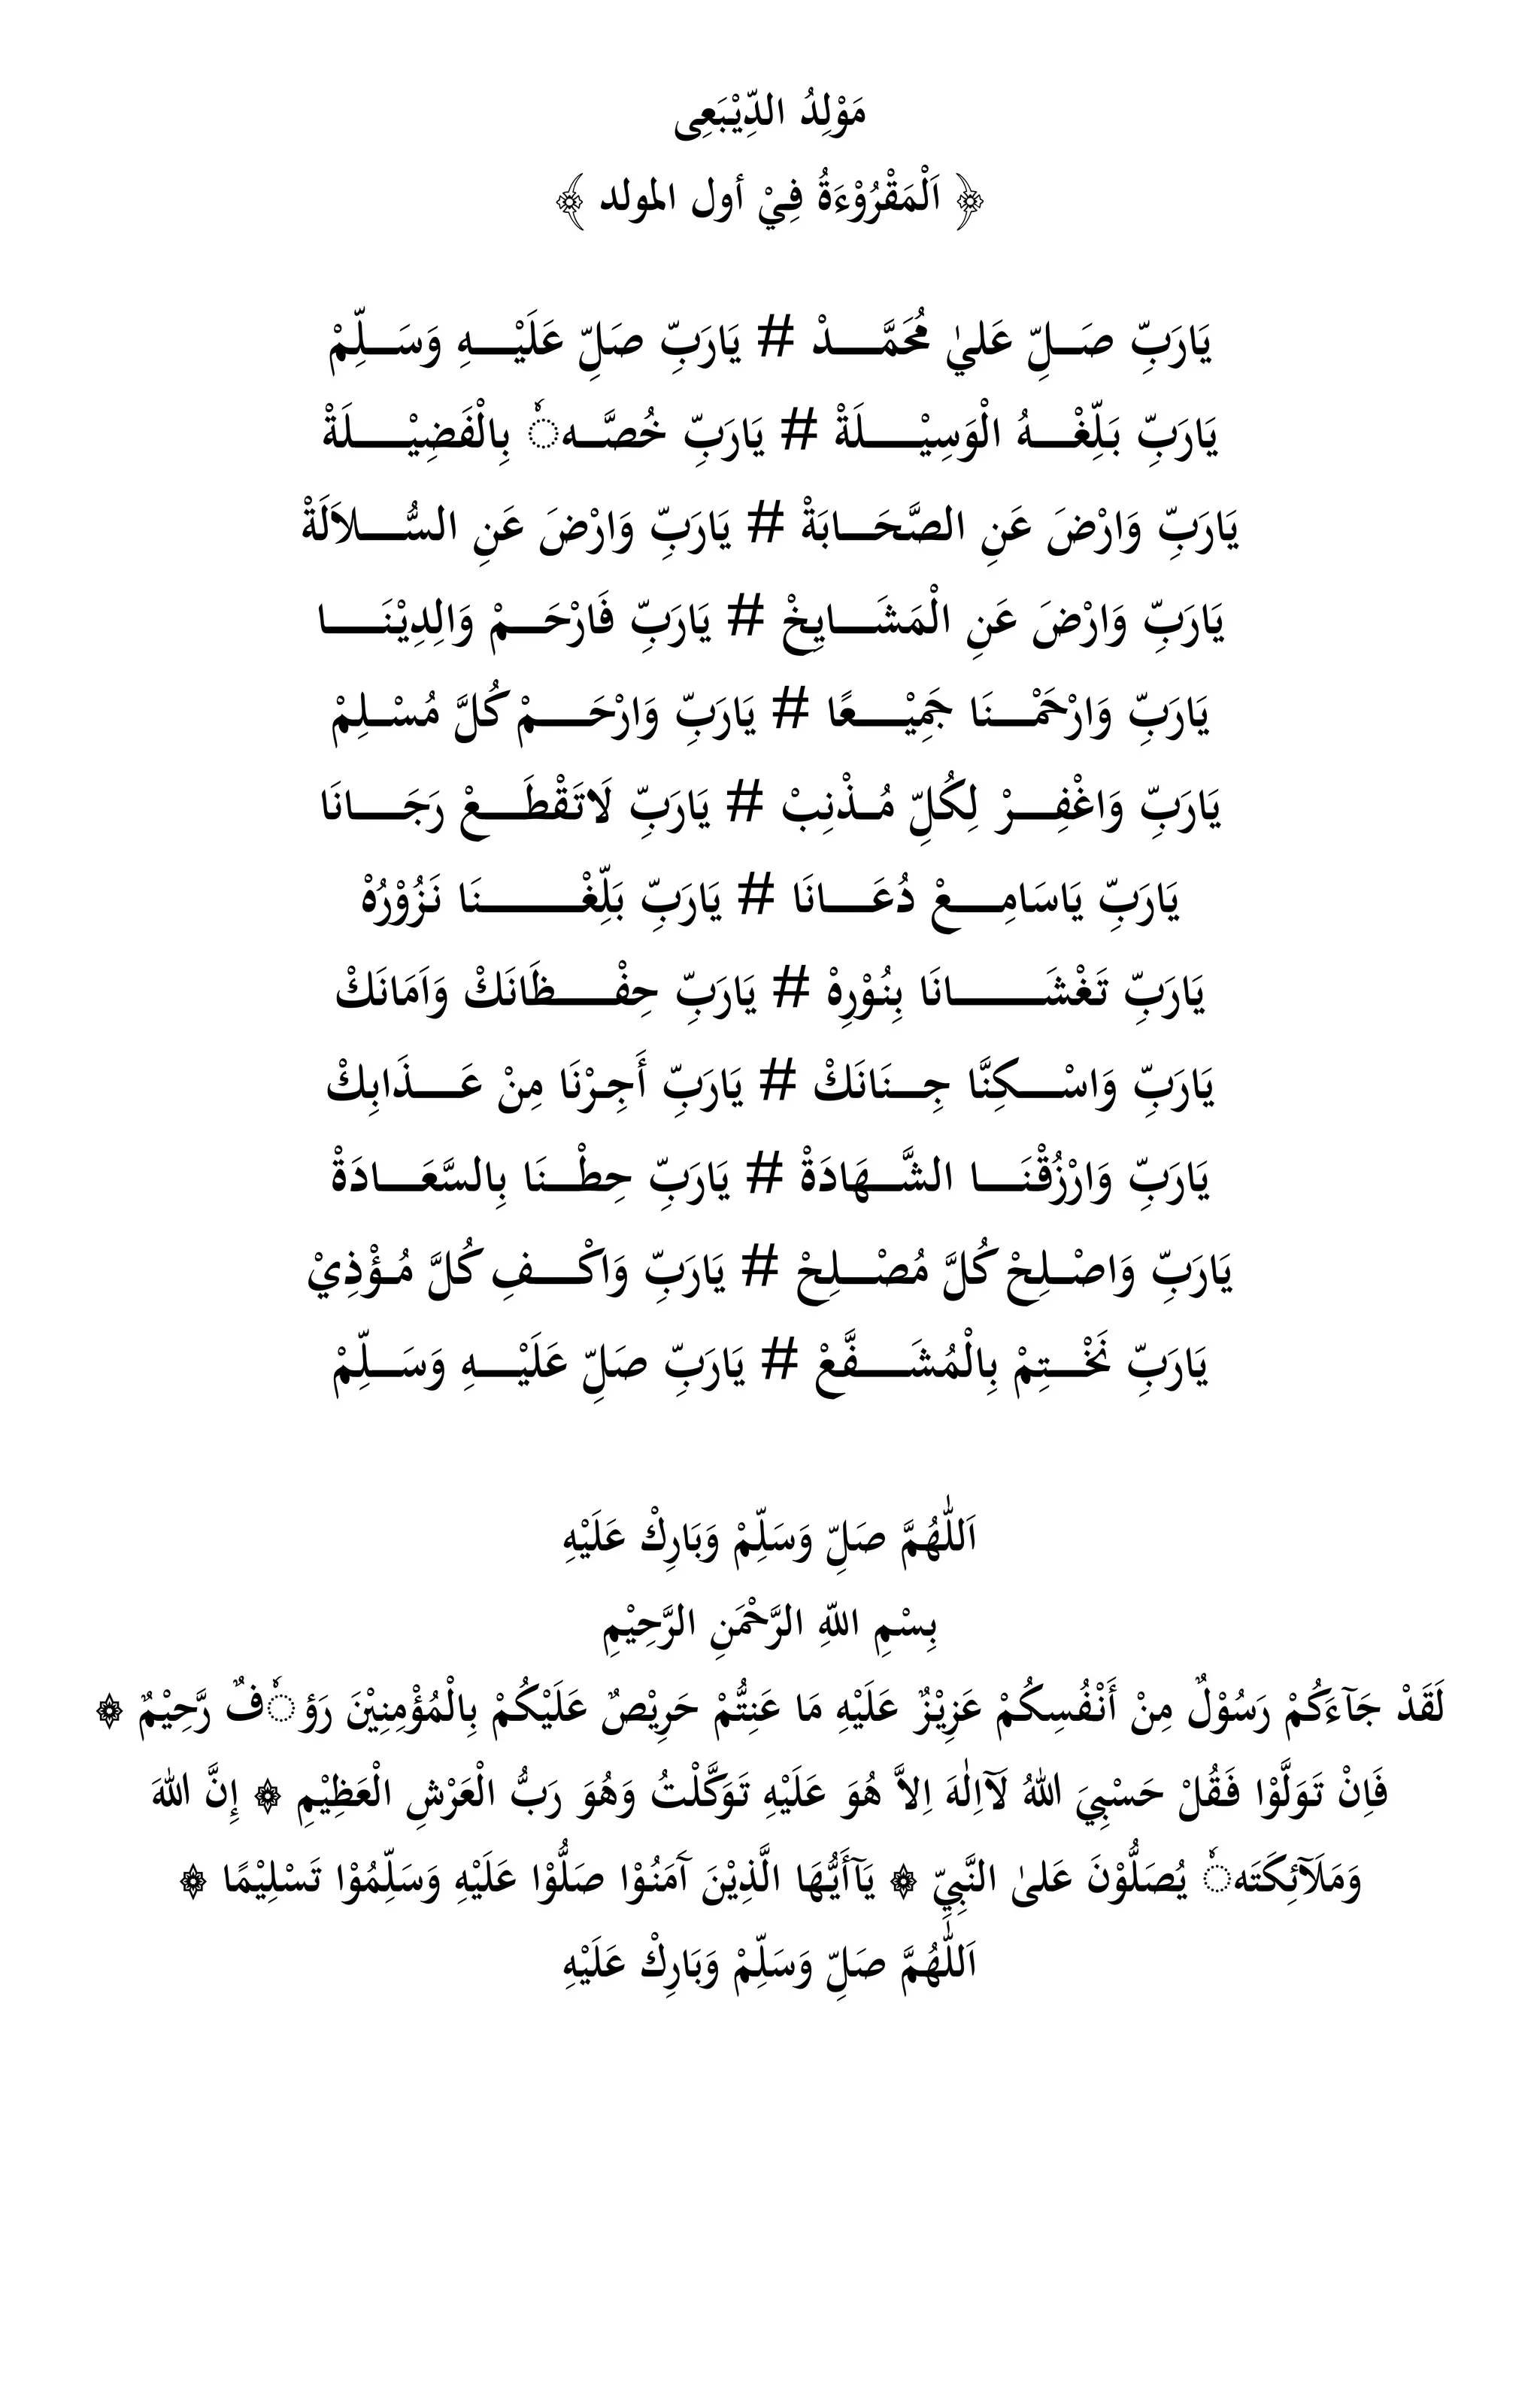 مَوْلِدُ الدِّيْبَعِى
﴿ اَلْمَقْرُوْءَةُ فِيْ أول المولد ﴾
يَارَبِّ صَـــلِّ عَليٰ مُحَمَّـــــدْ # يَارَبِّ صَلِّ عَلَيْـــــهِ وَسَـــلِّمْ
يَارَبِّ بَلِّغْـــــهُ الْوَسِيْـــــلَةْ # يَارَبِّ خُصَّـــهٗ بِالْفَضِيْـــــلَةْ
يَارَبِّ وَارْضَ عَنِ الصَّحَـــابَةْ # يَارَبِّ وَارْضَ عَنِ السُّـــــلاَلَةْ
يَارَبِّ وَارْضَ عَنِ الْمَشَـــايِخْ # يَارَبِّ فَارْحَـــمْ وَالِدِيْنَـــــا
يَارَبِّ وَارْحَمْـــنَا جَمِيْـــــعًا # يَارَبِّ وَارْحَـــــمْ كُلَّ مُسْـــلِمْ
يَارَبِّ وَاغْفِـــــرْ لِكُلِّ مُـذْنِبْ # يَارَبِّ لَاتَقْطَـــــعْ رَجَـــــانَا
يَارَبِّ يَاسَامِـــــعْ دُعَـــــانَا # يَارَبِّ بَلِّغْـــــــــنَا نَزُوْرُهْ
يَارَبِّ تَغْشَـــــــــانَا بِنُوْرِهْ # يَارَبِّ حِفْـــــظَانَكْ وَاَمَانَكْ
يَارَبِّ وَاسْـــــكِنَّا جِـــنَانَكْ # يَارَبِّ أَجِـرْنَا مِنْ عَـــــذَابِكْ
يَارَبِّ وَارْزُقْنَـــــا الشَّـــهَادَةْ # يَارَبِّ حِطْـــنَا بِالسَّعَـــــادَةْ
يَارَبِّ وَاصْـــلِحْ كُلَّ مُصْـــــلِحْ # يَارَبِّ وَاكْـــــفِ كُلَّ مُـؤْذِيْ
يَارَبِّ نَخْـــتِمْ بِالْمُشَـــــفَّعْ # يَارَبِّ صَلِّ عَلَيْـــــهِ وَسَـــلِّمْ
اَللّٰهُمَّ صَلِّ وَسَلِّمْ وَبَارِكْ عَلَيْهِ
بِسْمِ اللهِ الرَّحْمَنِ الرَّحِيْمِ
لَقَدْ جَآءَكُمْ رَسُوْلٌ مِنْ أَنْفُسِكُمْ عَزِيْزٌ عَلَيْهِ مَا عَنِتُّمْ حَرِيْصٌ عَلَيْكُمْ بِالْمُؤْمِنِيْنَ رَؤٗفٌ رَّحِيْمٌ ۞
فَاِنْ تَوَلَّوْا فَقُلْ حَسْبِيَ اللهُ لَآاِلٰهَ اِلاَّ هُوَ عَلَيْهِ تَوَكَّلْتُ وَهُوَ رَبُّ الْعَرْشِ الْعَظِيْمِ ۞ إِنَّ اللهَ
وَمَلَآئِكَتَهٗ يُصَلُّوْنَ عَلىٰ النَّبِيِّ ۞ يَآأَيُّهَا الَّذِيْنَ آمَنُوْا صَلُّوْا عَلَيْهِ وَسَلِّمُوْا تَسْلِيْمًا ۞
اَللّٰهُمَّ صَلِّ وَسَلِّمْ وَبَارِكْ عَلَيْهِ